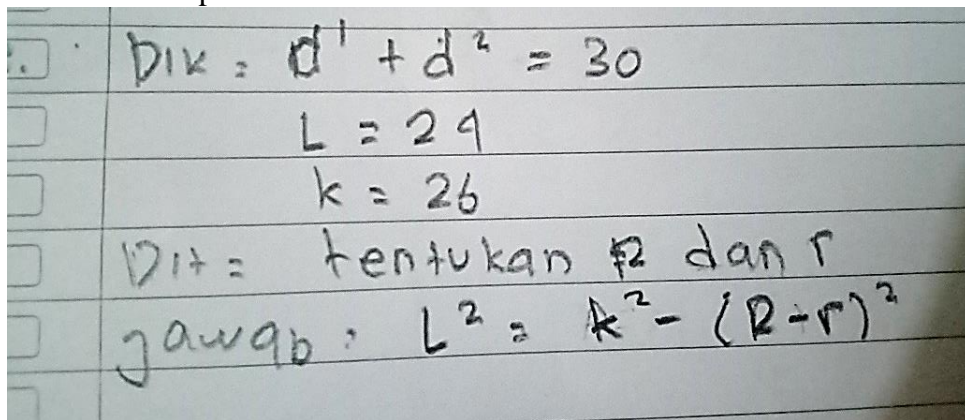 Dik = d¹ + d² = 30
L = 24
k = 26
Dit = tentukan R dan r
jawab : L² = k² - (R-r)²